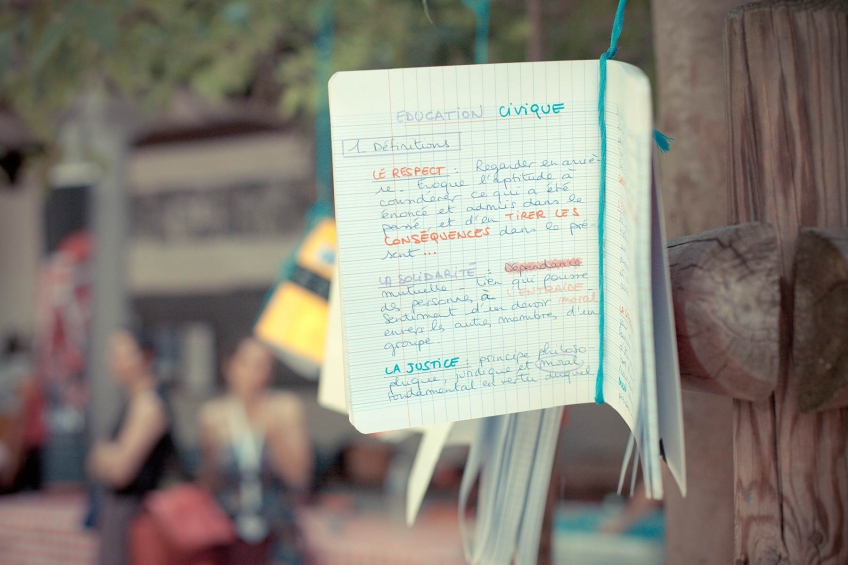 EDUCATION CIVIQUE
1. Définitions
LE RESPECT : Regarder en arriè-
re - Evoque l'aptitude à
considérer ce qui a été
énoncé et admis dans le
passé et d'en TIRER LES
CONSÉQUENCES dans le pré-
sent ...
LA SOLIDARITÉ : Dépendance
mutuelle - lien qui pousse
des personnes à l'ENTRAIDE -
Sentiment d'un devoir moral
envers les autres membres d'un
groupe
LA JUSTICE : principe philoso-
phique, juridique et moral
fondamental en vertu duquel